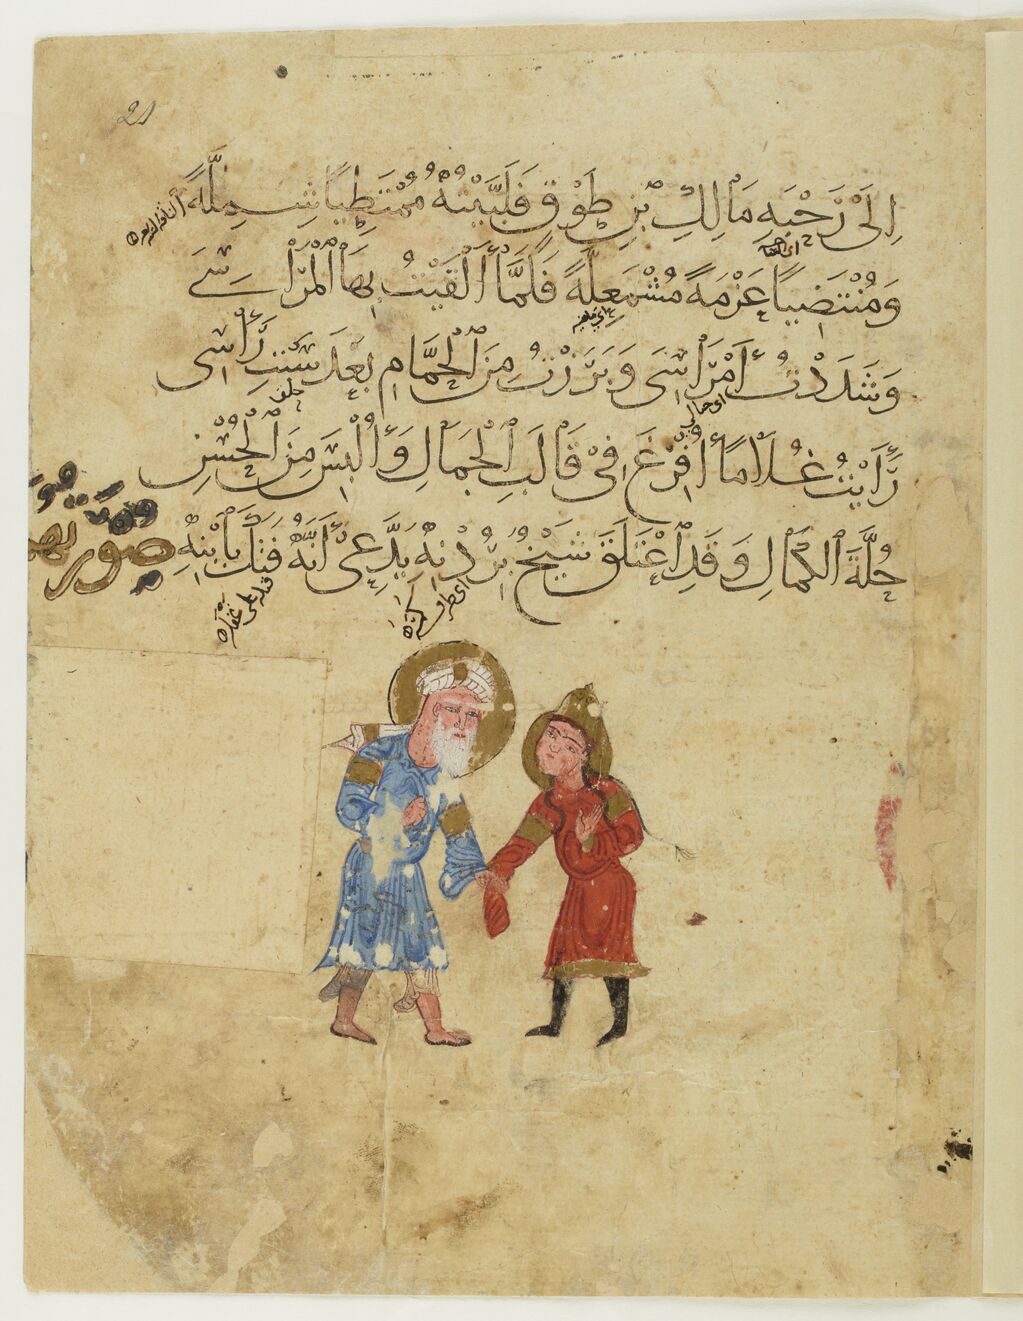 21
إِلَى رَحْبَةِ مَالِكِ بْنِ طَوْقٍ فَلَبَّيْتُهُ مُمْتَطِيًا شِمِلَّةً
وَمُنْتَضِيًا عَزْمَةً مُشْمَعِلَّةً فَلَمَّا أَلْقَيْتُ بِهَا الْمَرَاسِيَ
وَشَدَدْتُ أَمْرَاسِي وَبَرَزْتُ مِنَ الْحَمَّامِ بَعْدَ سَبْتِ رَأْسِي
رَأَيْتُ غُلَامًا أُفْرِغَ فِي قَالَبِ الْجَمَالِ وَأُلْبِسَ مِنَ الْحُسْنِ
حُلَّةَ الْكَمَالِ وَقَدِ اعْتَلَقَ شَيْخٌ بِرُدْنِهِ يَدَّعِي أَنَّهُ فَتَكَ بِابْنِهِ
اي حبالي
حلق